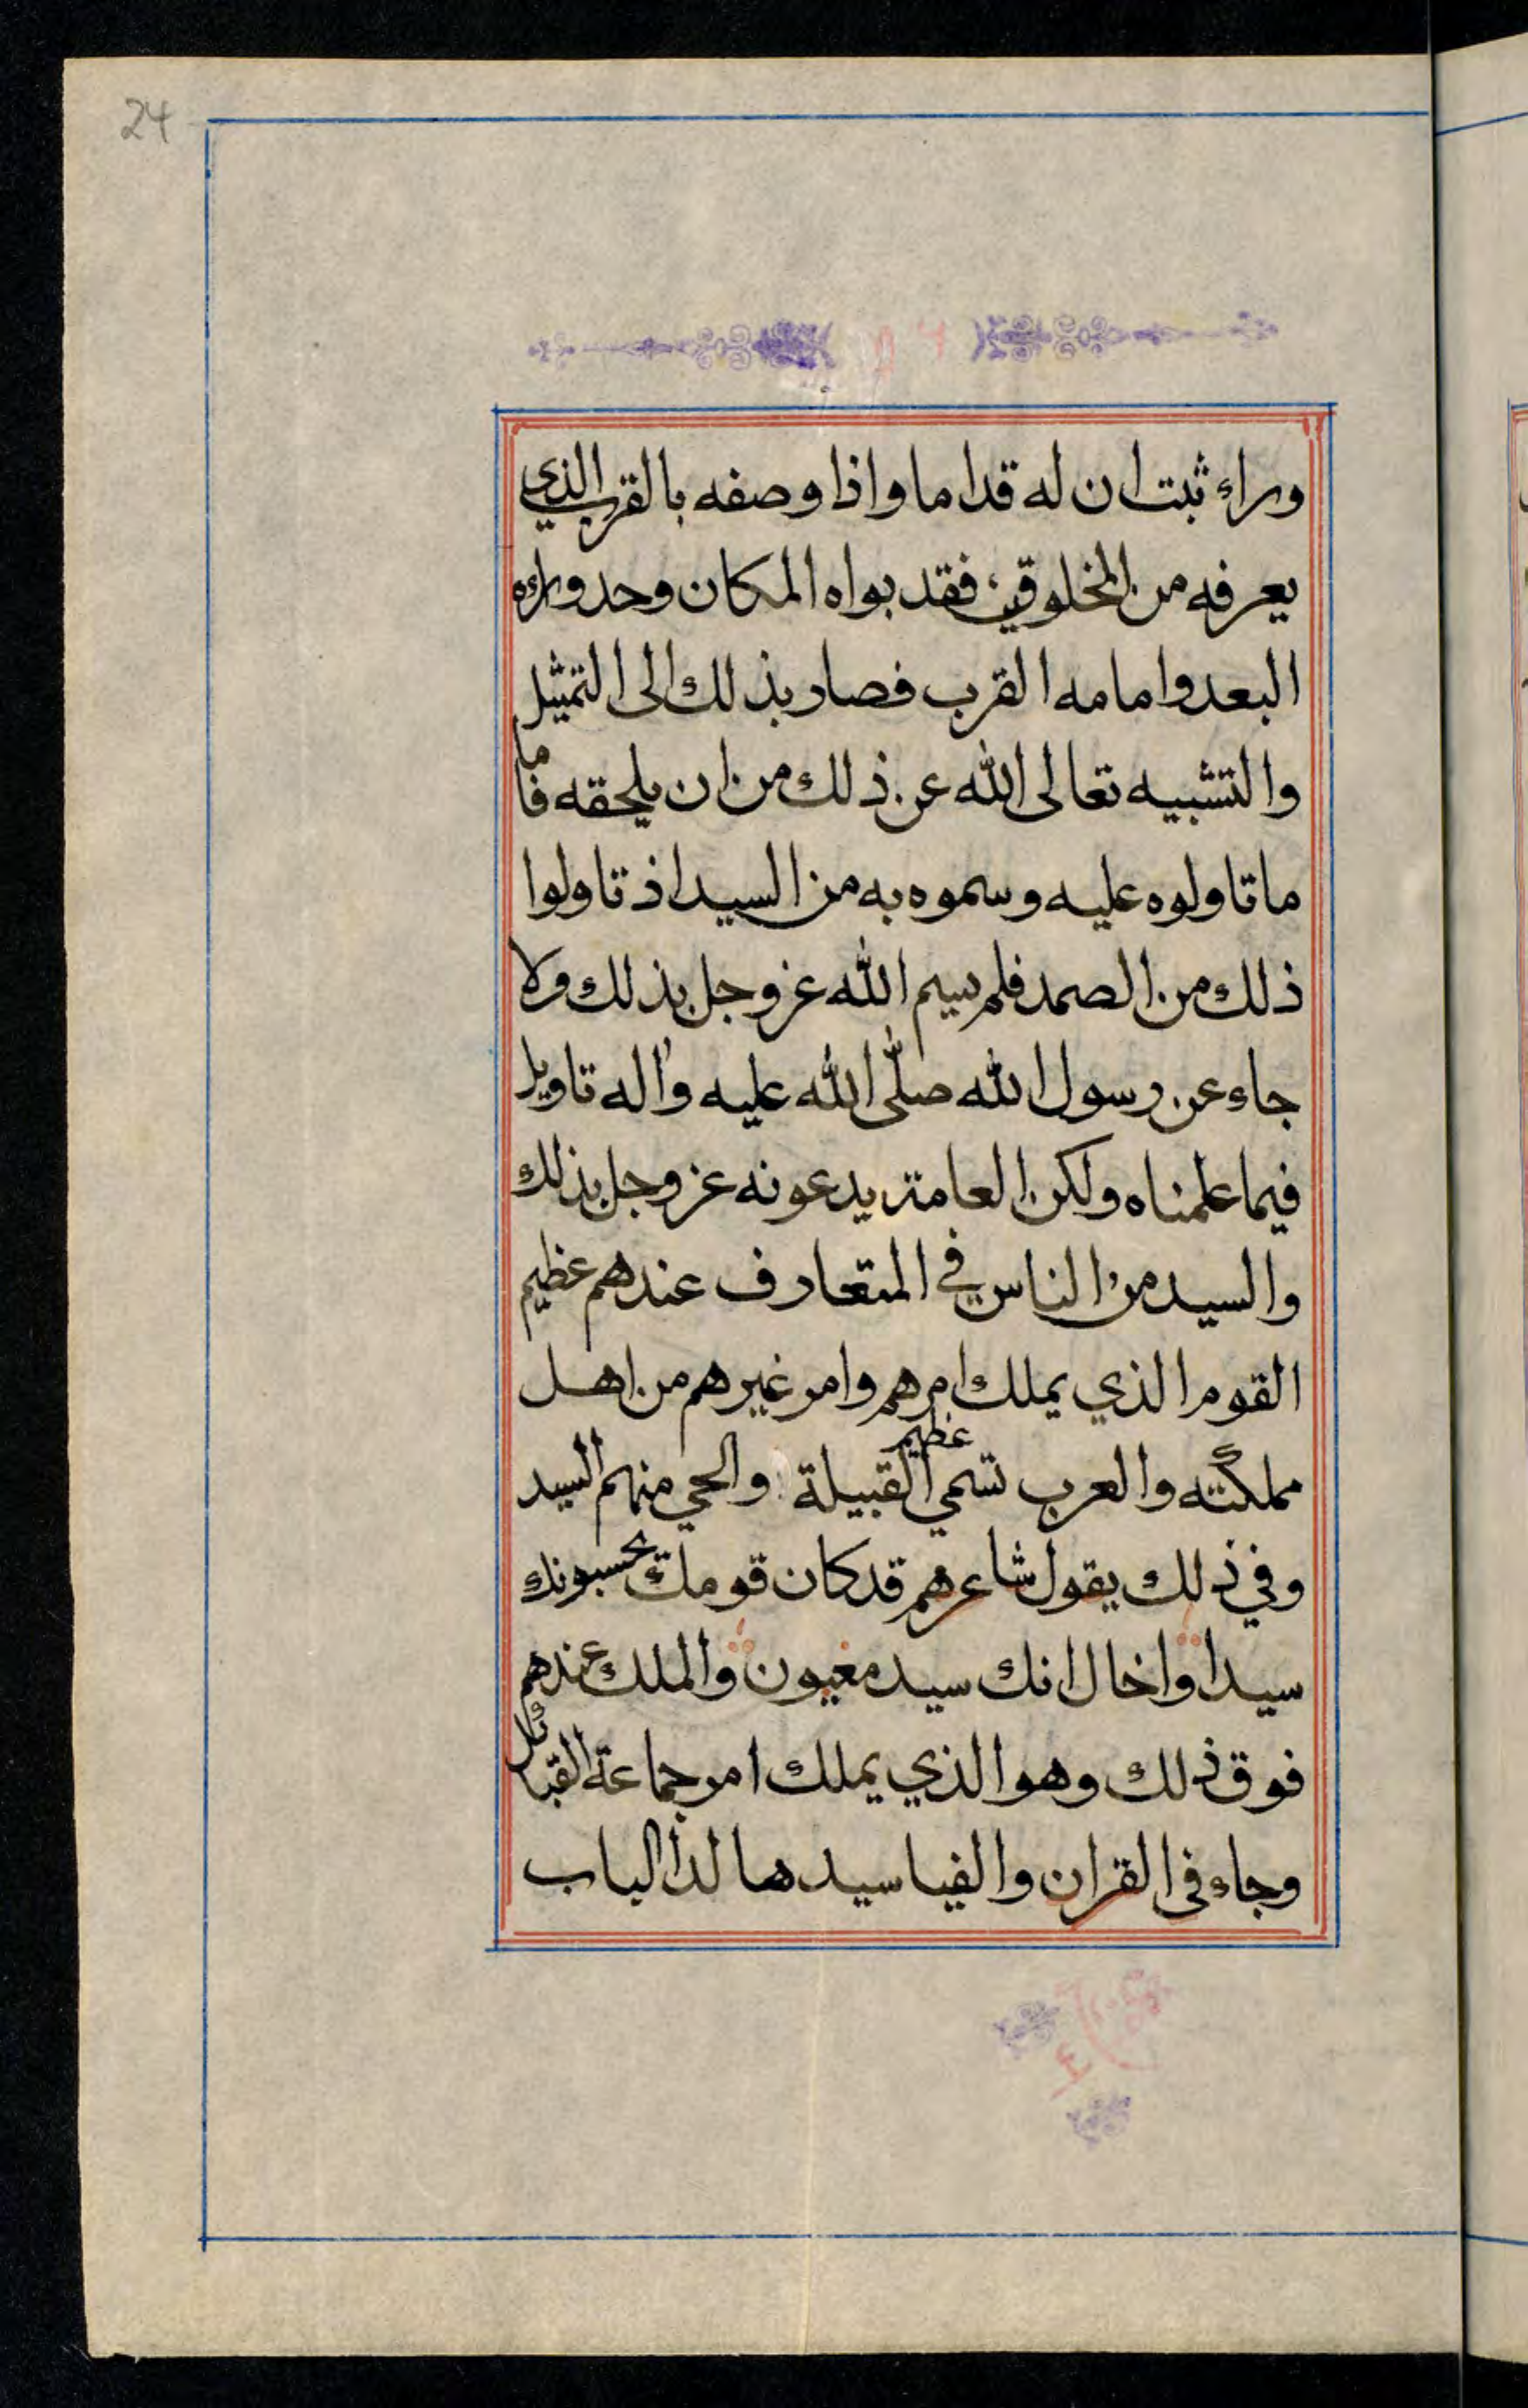 24
وراء ثبت ان له قداما واذا وصفه بالقرب الذي
يعرفه من المخلوقين فقد بواه المكان وحد وراءه
البعد وامامه القرب فصار بذلك الى التمثيل
والتشبيه تعالى الله عن ذلك من ان يلحقه فاما
ما تاولوه عليه وسموه به من السيد اذ تاولوا
ذلك من الصمد فلم يسم الله عز وجل بذلك ولا
جاء عن رسول الله صلى الله عليه واله تاويل
فيما علمناه ولكن العامة يدعونه عز وجل بذلك
والسيد من الناس في المتعارف عندهم عظيم
القوم الذي يملك امرهم وامر غيرهم من اهل
مملكته والعرب تسمي عظيم القبيلة والحي منهم السيد
وفي ذلك يقول شاعرهم قد كان قومك يحسبونك
سيدا واخال انك سيد مغيون والملك عندهم
فوق ذلك وهو الذي يملك امر جماعة القبائل
وجاء في القران والفيا سيدها لدا الباب